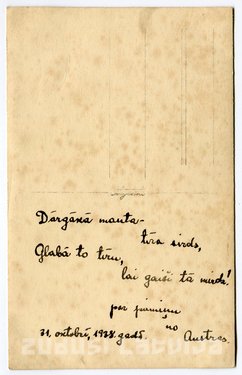 Dārgākā manta-
tīra sirds,
Glabā to tīru,
lai gaiši tā mirdz!
par piemiņu
no
31. oktobrī, 1928. gadā. Austras.